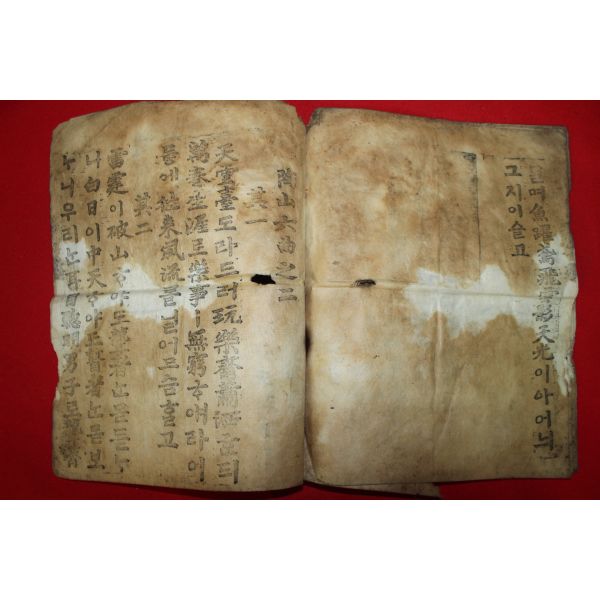 며魚躍鳶飛雲影天光이아어늬
그지이슬고
陶山六曲之二
其一
天雲臺도라드러玩樂齋蕭洒ᄒᆞᆫ듸
萬卷生涯로樂事ㅣ無窮ᄒᆞ얘라이
듕에往來風流를닐어므슴ᄒᆞᆯ고
其二
雷霆이破山ᄒᆞ야도聾者ᄂᆞᆫ몯듣ᄂᆞ
니白日이中天ᄒᆞ야도瞽者ᄂᆞᆫ몯보
ᄂᆞ니우리ᄂᆞᆫ耳目聰明男子로聾瞽